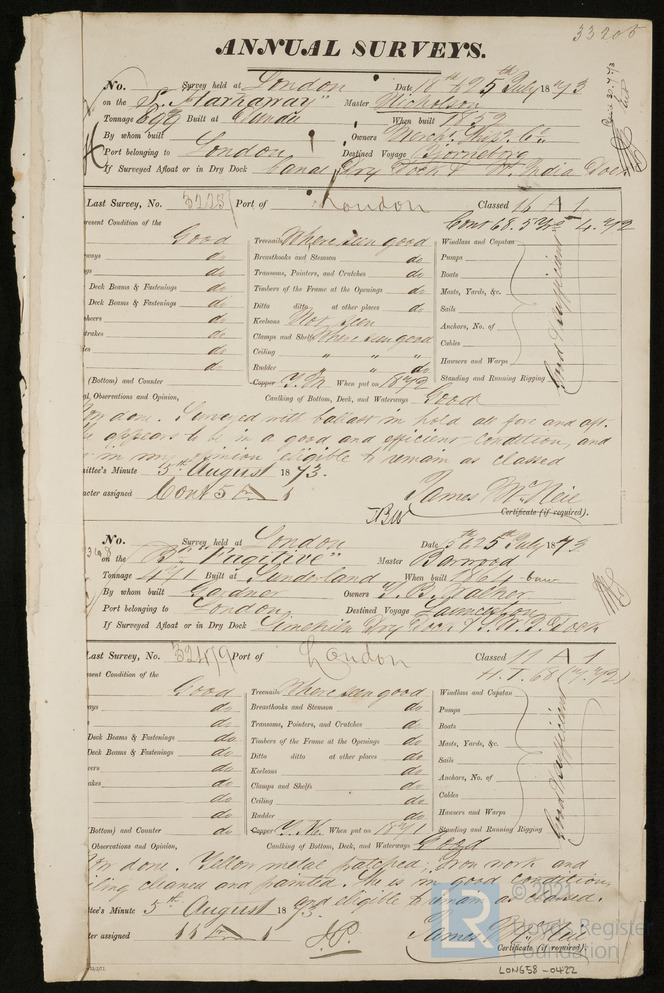 33206
ANNUAL SURVEYS.
No. Survey held at London Date 18th & 25th July 1873
on the Master Nicholson
Tonnage 898 Built at Dundee When built 1859
By whom built Owners Mercht. Ship. Co.
Port belonging to London Destined Voyage Bjorneborg
If Surveyed Afloat or in Dry Dock Canal Dry Dock & W. India Dock
Last Survey, No. Port of London Classed A 1
Cont 68. 5 Yrs 4. 72
resent Condition of the
Good Treenails Where seen good Windlass and Capstan
ways do Breasthooks and Stemson do Pumps
gs do Transoms, Pointers, and Crutches do Boats
Deck Beams & Fastenings do Timbers of the Frame at the Openings do Masts, Yards, &c.
Deck Beams & Fastenings do Ditto ditto at other places do Sails
sheers do Keelsons Not seen Anchors, No. of
trakes do Clamps and Shelfs Where seen good Cables
es do Ceiling " " " Hawsers and Warps
do Rudder do Standing and Running Rigging
Good & sufficient
(Bottom) and Counter do Copper Y.M. When put on 1872
al Observations and Opinion, Caulking of Bottom, Deck, and Waterways Good
done. Surveyed with ballast in hold all fore and aft.
appears to be in a good and efficient condition, and
in my opinion eligible to remain as classed
mittee's Minute 5th August 1873.
acter assigned Cont 5 A 1 James McNeil
Certificate (if required).
No. Survey held at London Date 5th & 25th July 1873
on the Bk "Fugitive" Master Barwood
Tonnage 471 Built at Sunderland When built 1864
By whom built Gardner Owners Walker
Port belonging to London Destined Voyage Launceston
If Surveyed Afloat or in Dry Dock Limekiln Dry Dock & S. W. I. Dock
Last Survey, No. 32419 Port of London Classed 11 A 1
H.T. 68 (7.72)
sent Condition of the
Good Treenails Where seen good Windlass and Capstan
ays do Breasthooks and Stemson do Pumps
do Transoms, Pointers, and Crutches do Boats
Deck Beams & Fastenings do Timbers of the Frame at the Openings do Masts, Yards, &c.
Deck Beams & Fastenings do Ditto ditto at other places do Sails
eers do Keelsons do Anchors, No. of
akes do Clamps and Shelfs do Cables
do Ceiling do Hawsers and Warps
do Rudder do
Good & sufficient
Bottom) and Counter do Copper Y.M. When put on 1871 Standing and Running Rigging
Observations and Opinion, Caulking of Bottom, Deck, and Waterways Good
done. Yellow metal patched; Iron work and
ceiling cleaned and painted. She is in good condition,
and eligible to remain as classed.
ttee's Minute 5th August 1873.
ter assigned 11 A 1 James McNeil
Certificate (if required).
© 2021
LR Lloyd's Register
Foundation
LON658-0422